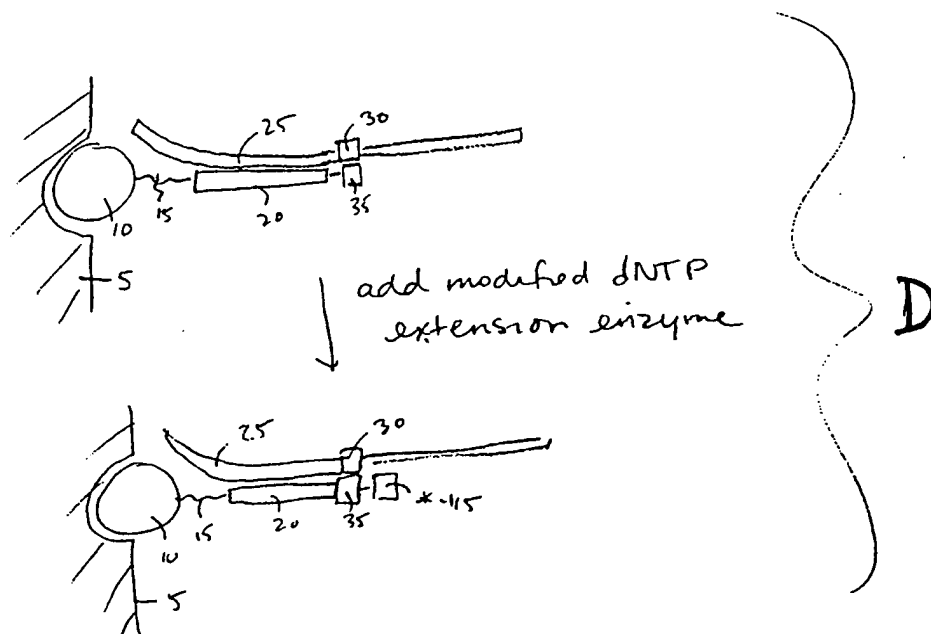 25
30
15
20
35
10
5
D
add modified dNTP
extension enzyme
25
30
15
20
35
*-115
10
5